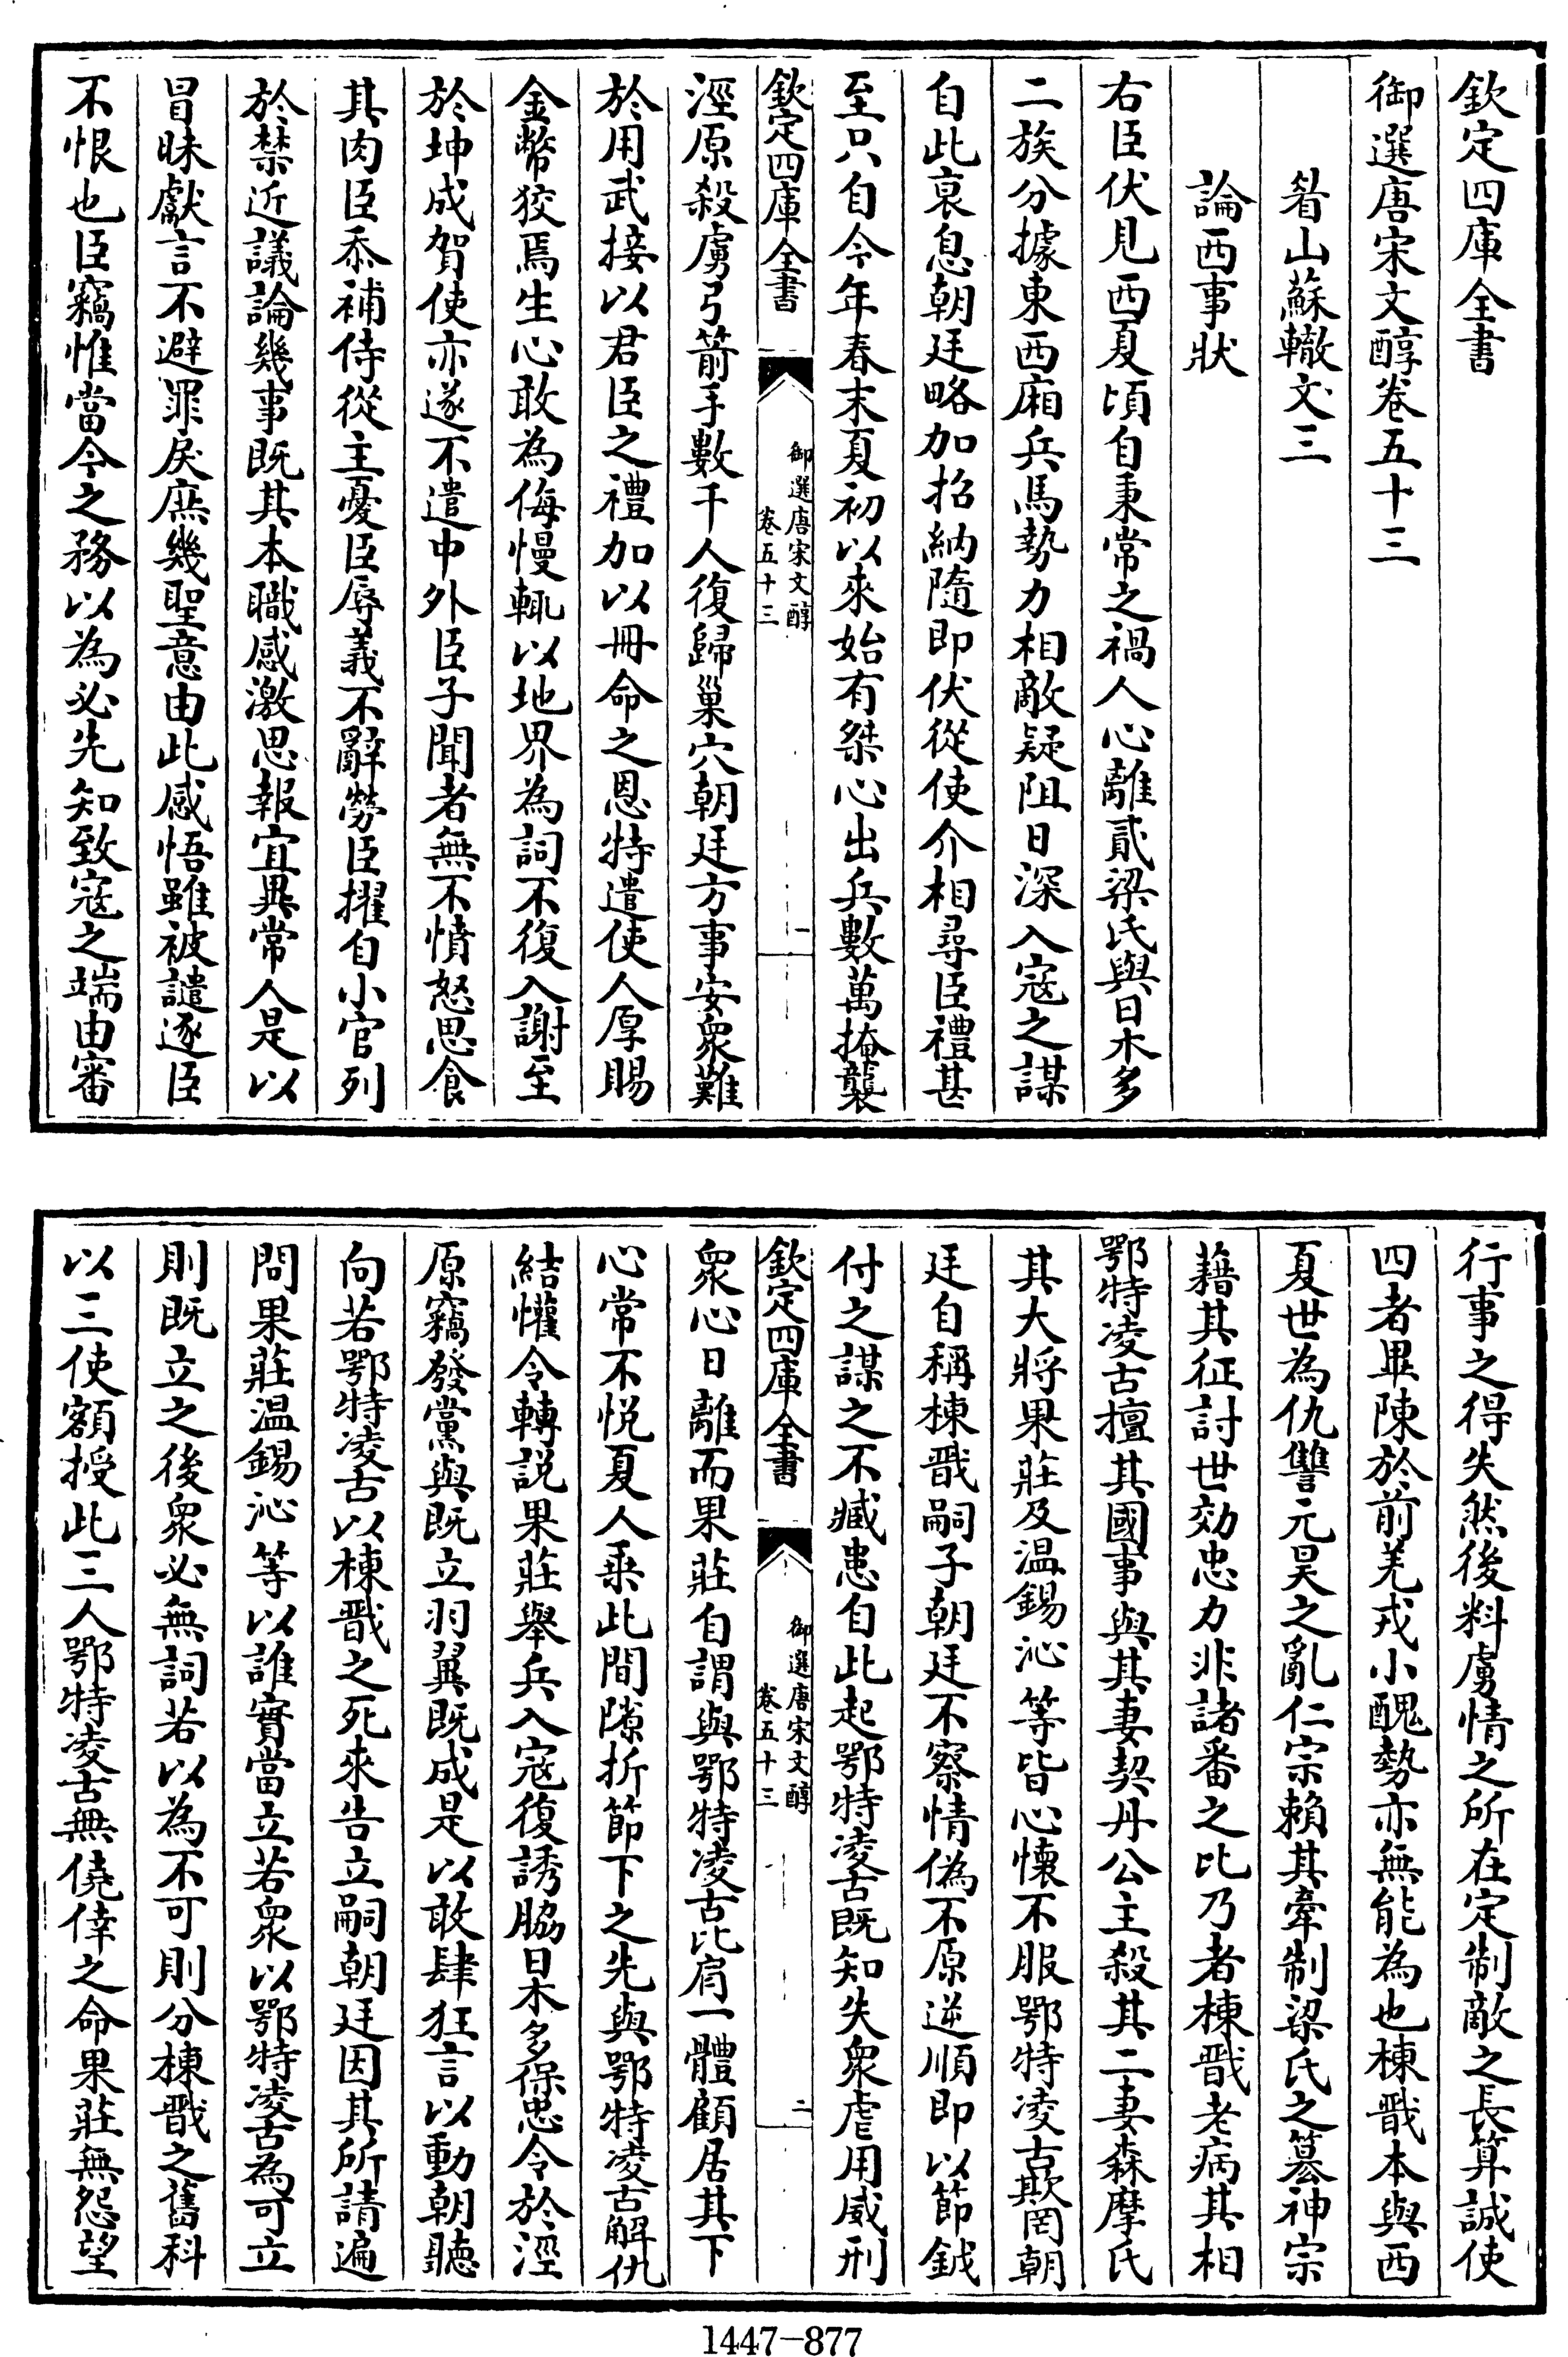 欽定四庫全書
御選唐宋文醇卷五十三
眉山蘇轍文三
論西事狀
右臣伏見西夏頃自秉常之禍人心離貳梁氏與日木多
二族分據東西廂兵馬勢力相敵疑阻日深入寇之謀
自此衰息朝廷略加招納隨即伏從使介相尋臣禮甚
至只自今年春末夏初以來始有桀心出兵數萬掩襲
欽定四庫全書
御選唐宋文醇
卷五十三
一
涇原殺虜弓箭手數千人復歸巢穴朝廷方事安衆難
於用武接以君臣之禮加以冊命之恩特遣使人厚賜
金幣狡焉生心敢為侮慢輒以地界為詞不復入謝至
於坤成賀使亦遂不遣中外臣子聞者無不憤怒思食
其肉臣忝補侍從主憂臣辱義不辭勞臣擢自小官列
於禁近議論幾事既其本職感激思報宜異常人是以
冒昧獻言不避罪戾庶幾聖意由此感悟雖被譴逐臣
不恨也臣竊惟當今之務以為必先知致寇之端由審
行事之得失然後料虜情之所在定制敵之長算誠使
四者畢陳於前羌戎小醜勢亦無能為也棟戩本與西
夏世為仇讐元昊之亂仁宗賴其牽制梁氏之篡神宗
藉其征討世効忠力非諸番之比乃者棟戩老病其相
鄂特凌古擅其國事與其妻契丹公主殺其二妻森摩氏
其大將果莊及温錫沁等皆心懷不服鄂特凌古欺罔朝
廷自稱棟戩嗣子朝廷不察情偽不原逆順即以節鉞
付之謀之不臧患自此起鄂特凌古既知失衆虐用威刑
欽定四庫全書
御選唐宋文醇
卷五十三
二
衆心日離而果莊自謂與鄂特凌古比肩一體顧居其下
心常不悦夏人乗此間隙折節下之先與鄂特凌古解仇
結懽令轉説果莊舉兵入寇復誘脇日木多保忠令於涇
原竊發黨與既立羽翼既成是以敢肆狂言以動朝聽
向若鄂特凌古以棟戩之死來告立嗣朝廷因其所請遍
問果莊温錫沁等以誰實當立若衆以鄂特凌古為可立
則既立之後衆必無詞若以為不可則分棟戩之舊科
以三使額授此三人鄂特凌古無僥倖之命果莊無怨望
1447-877